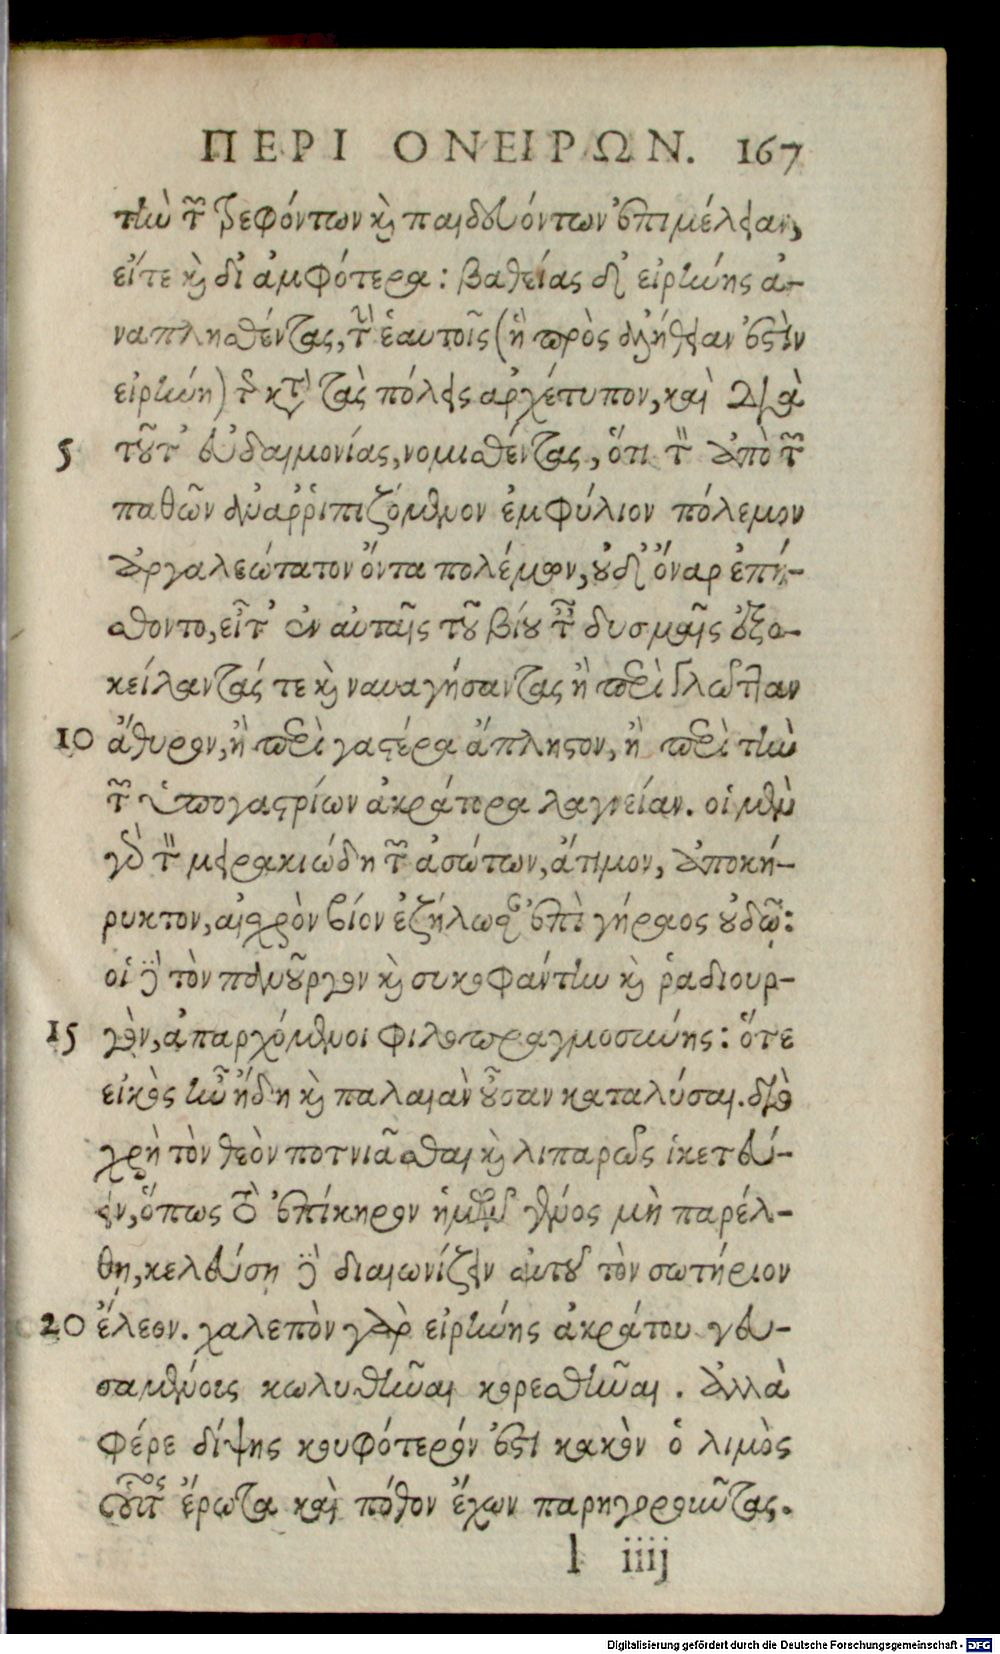 ΠΕΡΙ ΟΝΕΙΡΩΝ. 167
τὴν τῶν τρεφόντων καὶ παιδευόντων ἐπιμέλειαν,
εἴτε καὶ δι' ἀμφότερα: βαθείας δ' εἰρήνης ἀ-
ναπλησθέντας, τῆς ἑαυτοῖς (ἣ πρὸς ἀλήθειάν ἐστιν
εἰρήνη) τῆς κατὰ τὰς πόλεις ἀρχέτυπον, καὶ διὰ
5 τοῦτ' εὐδαιμονίας, νομισθέντας, ὅτι τὸν ἀπὸ τῶν
παθῶν ἀναρριπιζόμενον ἐμφύλιον πόλεμον
ἀργαλεώτατον ὄντα πολέμων, οὐδ' ὄναρ ἐπῄ-
σθοντο, εἶτ' ἐν αὐταῖς τοῦ βίου ταῖς δυσμαῖς ἐξο-
κείλαντάς τε καὶ ναυαγήσαντας ἢ περὶ γλῶτταν
10 ἄθυρον, ἢ περὶ γαστέρα ἄπληστον, ἢ περὶ τὴν
τῶν ὑπογαστρίων ἀκράτορα λαγνείαν. οἱ μὲν
γὰρ τὸν μειρακιώδη τῶν ἀσώτων, ἄτιμον, ἀποκή-
ρυκτον, αἰσχρὸν βίον ἐζήλωσαν ἐπὶ γήραος οὐδῷ:
οἱ δὲ τὸν πανοῦργον καὶ συκοφάντην καὶ ῥᾳδιουρ-
15 γὸν, ἀπαρχόμενοι φιλοπραγμοσύνης: ὅτε
εἰκὸς ἦν ἤδη καὶ παλαιὰν οὖσαν καταλύσαι. διὸ
χρὴ τὸν θεὸν ποτνιᾶσθαι καὶ λιπαρῶς ἱκετεύ-
ειν, ὅπως τὸ ἐπίκηρον ἡμῶν γένος μὴ παρέλ-
θῃ, κελεύσῃ δὲ διαιωνίζειν αὐτοῦ τὸν σωτήριον
20 ἔλεον. χαλεπὸν γὰρ εἰρήνης ἀκράτου γευ-
σαμένοις κωλυθῆναι κορεσθῆναι. Ἀλλὰ
φέρε δίψης κουφότερόν ἐστι κακὸν ὁ λιμὸς
οὗτος ἔρωτα καὶ πόθον ἔχων παρηγοροῦντας.
l iiij
Digitalisierung gefördert durch die Deutsche Forschungsgemeinschaft - DFG